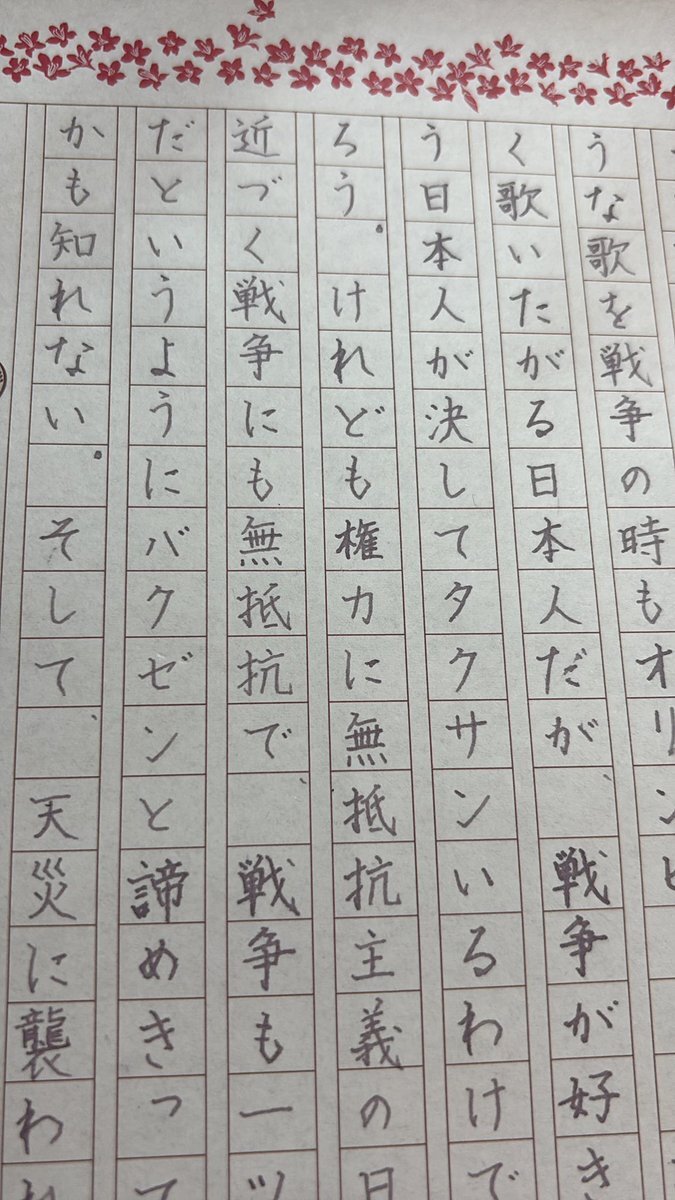 うな歌を戦争の時もオリン
く歌いたがる日本人だが、戦争が好き
う日本人が決してタクサンいるわけで
ろう。けれども権力に無抵抗主義の日
近づく戦争にも無抵抗で、戦争も一ツ
だというようにバクゼンと諦めきって
かも知れない。そして、天災に襲われ